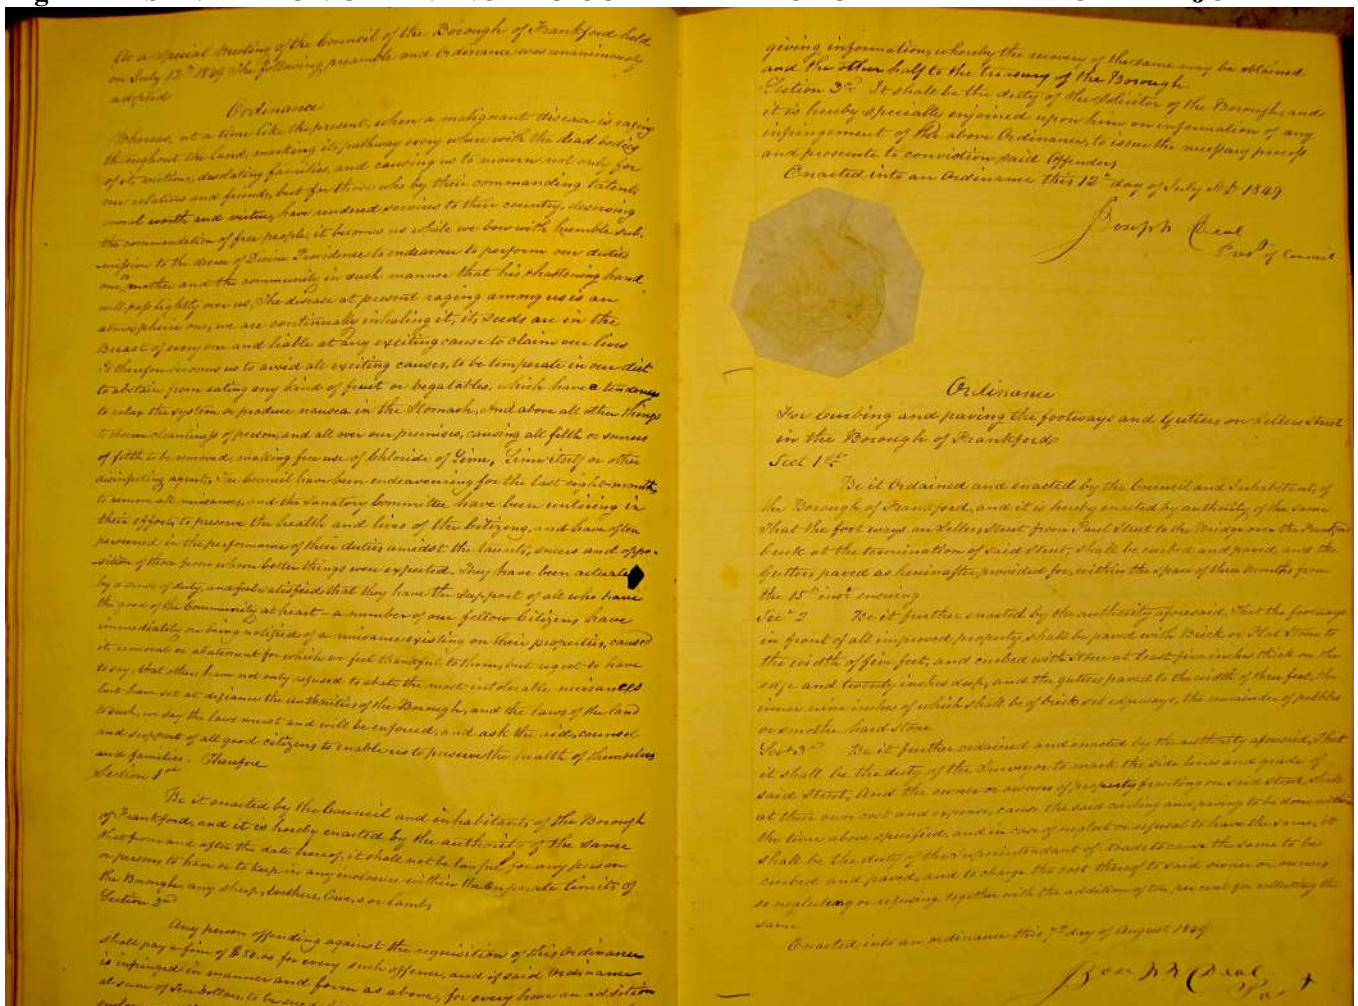 At a Special Meeting of the Council of the Borough of Frankford held
on July 12th 1849 The following preamble and Ordinance was unanimously
adopted
Ordinance
Whereas, at a time like the present, when a malignant disease is raging
throughout the land, marking its pathway every where with the dead bodies
of its victims, desolating families, and causing us to mourn not only for
our relatives and friends, but for those who by their commanding talents
moral worth and virtue, have rendered services to their country, deserving
the commendation of free people, it becomes us while we bow with humble sub-
-mission to the decree of Divine Providence to endeavour to perform our duties
one another and the community in such manner that his chastening hand
will pass lightly over us, The disease at present raging among us is an
atmospheric one, we are continually inhaling it, its seeds are in the
Breast of every one and liable at any exciting cause to claim our lives
It therefore becomes us to avoid all exciting causes, to be temperate in our diet
to abstain from eating any kind of fruit or vegatables, which have a tendency
to relax the system or produce nausea in the Stomach, And above all other things
to cleanliness of person, and all over our premises, causing all filth or sources
of filth to be removed, making free use of Chloride of Lime, Lime itself or other
disinfecting agents, The Council have been endeavouring for the last eight months
to remove all nuisances, and the Sanatory Committee have been untiring in
their efforts to preserve the health and lives of the Citizens, and have often
persevered in the performance of their duties amidst the taunts, sneers and oppo-
-sition of those from whom better things were expected. They have been actuated
by a sense of duty, and feel satisfied that they have the support of all who have
the good of the Community at heart - a number of our fellow Citizens have
immediately on being notified of a nuisance existing on their properties, caused
its removal or abatement for which we feel thankful to them, but regret to have
to say, that others have not only refused to abate the most intolerable nuisances
but have set at defiance the authorities of the Borough, and the laws of the land
to such, we say the laws must and will be enforced, and ask the aid, counsel
and support of all good citizens to enable us to preserve the health of themselves
and families. Therefore
Section 1st
Be it enacted by the Council and inhabitants of the Borough
of Frankford, and it is hereby enacted by the authority of the same
that from and after the date hereof, it shall not be lawful for any person
or persons to have or to keep in any enclosure within the corporate limits of
the Borough, any sheep, Ewes or lambs,
Section 2nd
Any person offending against the requisition of this Ordinance
shall pay a fine of $50.00 for every such offence, and if said Ordinance
is infringed in manner and form as above, for every hour an addition
al sum of Ten Dollars, to be
giving information, whereby the recovery of the same may be obtained
and the other half to the treasury of the Borough
Section 3rd It shall be the duty of the Solicitor of the Borough, and
it is hereby specially enjoined upon him on information of any
infringement of the above Ordinance, to issue the necessary process
and prosecute to conviction said Offenders
Enacted into an Ordinance this 12th day of July A.D. 1849
Joseph Deal
Prest of Council
Ordinance
For Curbing and paving the footways and Gutters on Sellers Street
in the Borough of Frankford
Sect 1st
Be it Ordained and enacted by the Council and Inhabitants of
the Borough of Frankford, and it is hereby enacted by authority of the same
That the foot ways on Sellers Street from Paul Street to the Bridge over the Frankford
Creek at the termination of said Street, shall be curbed and paved, and the
Gutters paved as hereinafter provided for, within the space of three Months from
the 15th inst ensuing
Sect 2 Be it further enacted by the authority aforesaid, That the footways
in front of all improved property shall be paved with Brick or Flat Stone to
the width of five feet, and curbed with Stone at least five inches thick on the
edge and twenty inches deep, and the gutters paved to the width of three feet, the
inner nine inches of which shall be of brick set edgeways, the remainder of pebbles
or smooth hard Stone
Sect 3rd Be it further ordained and enacted by the authority aforesaid, That
it shall be the duty of the Surveyor to mark the side lines and grade of
said Street, And the owner or owners of property fronting on said Street shall
at their own cost and expense, cause the said curbing and paving to be done within
the time above specified, and in case of neglect or refusal to have the same, it
shall be the duty of the Superintendant of Roads to cause the same to be
curbed and paved, and to charge the cost thereof to said owner or owners
so neglecting or refusing together with the addition of ten per cent for collecting the
same
Enacted into an ordinance this 7th day of August 1849
Joseph Deal
Prest